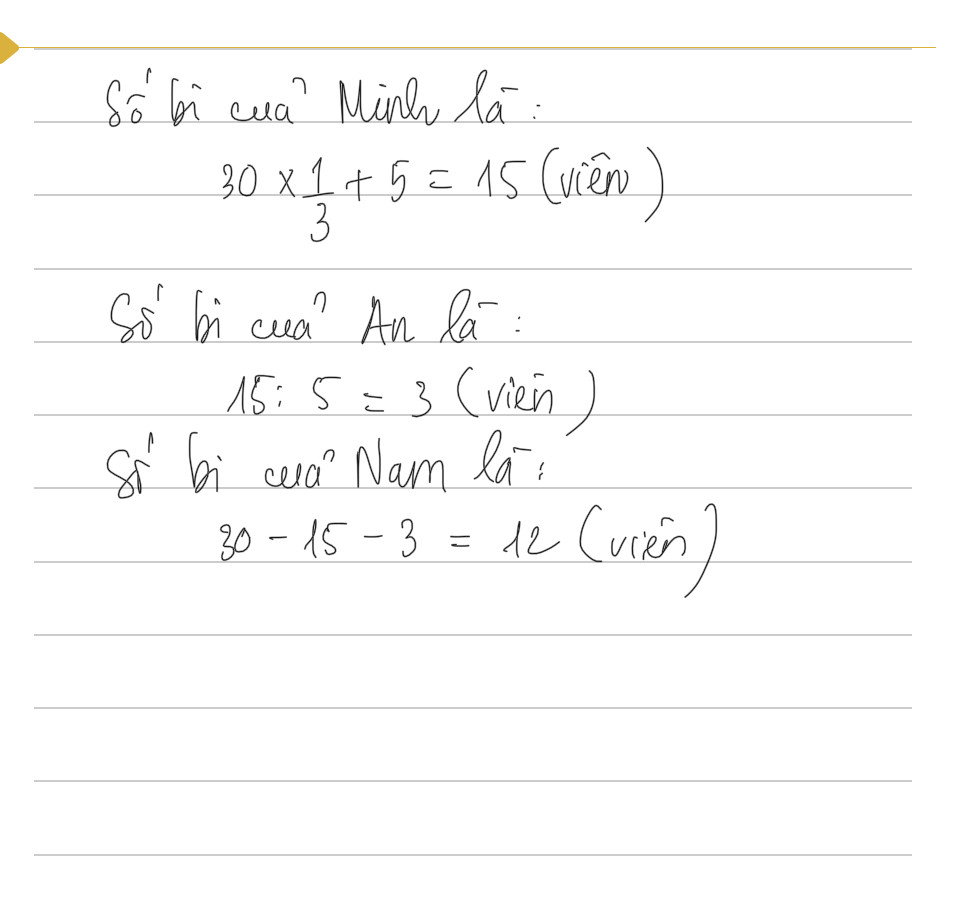 Số bi của Minh là:
30 × 1/3 + 5 = 15 (viên)
Số bi của An là:
15 : 5 = 3 (viên)
Số bi của Nam là:
30 - 15 - 3 = 12 (viên)